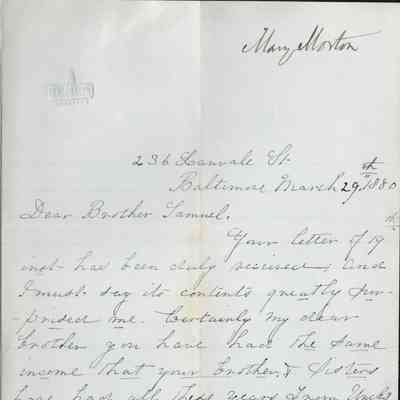 Mary Morton
236 Lanvale St.
Baltimore March 29th 1880
Dear Brother Samuel.
Your letter of 19th
inst- has been duly received; and
I must say its contents greatly sur-
-prised me. Certainly my dear
brother you have had the same
income that your brother & Sisters
have had all these years from Uncle